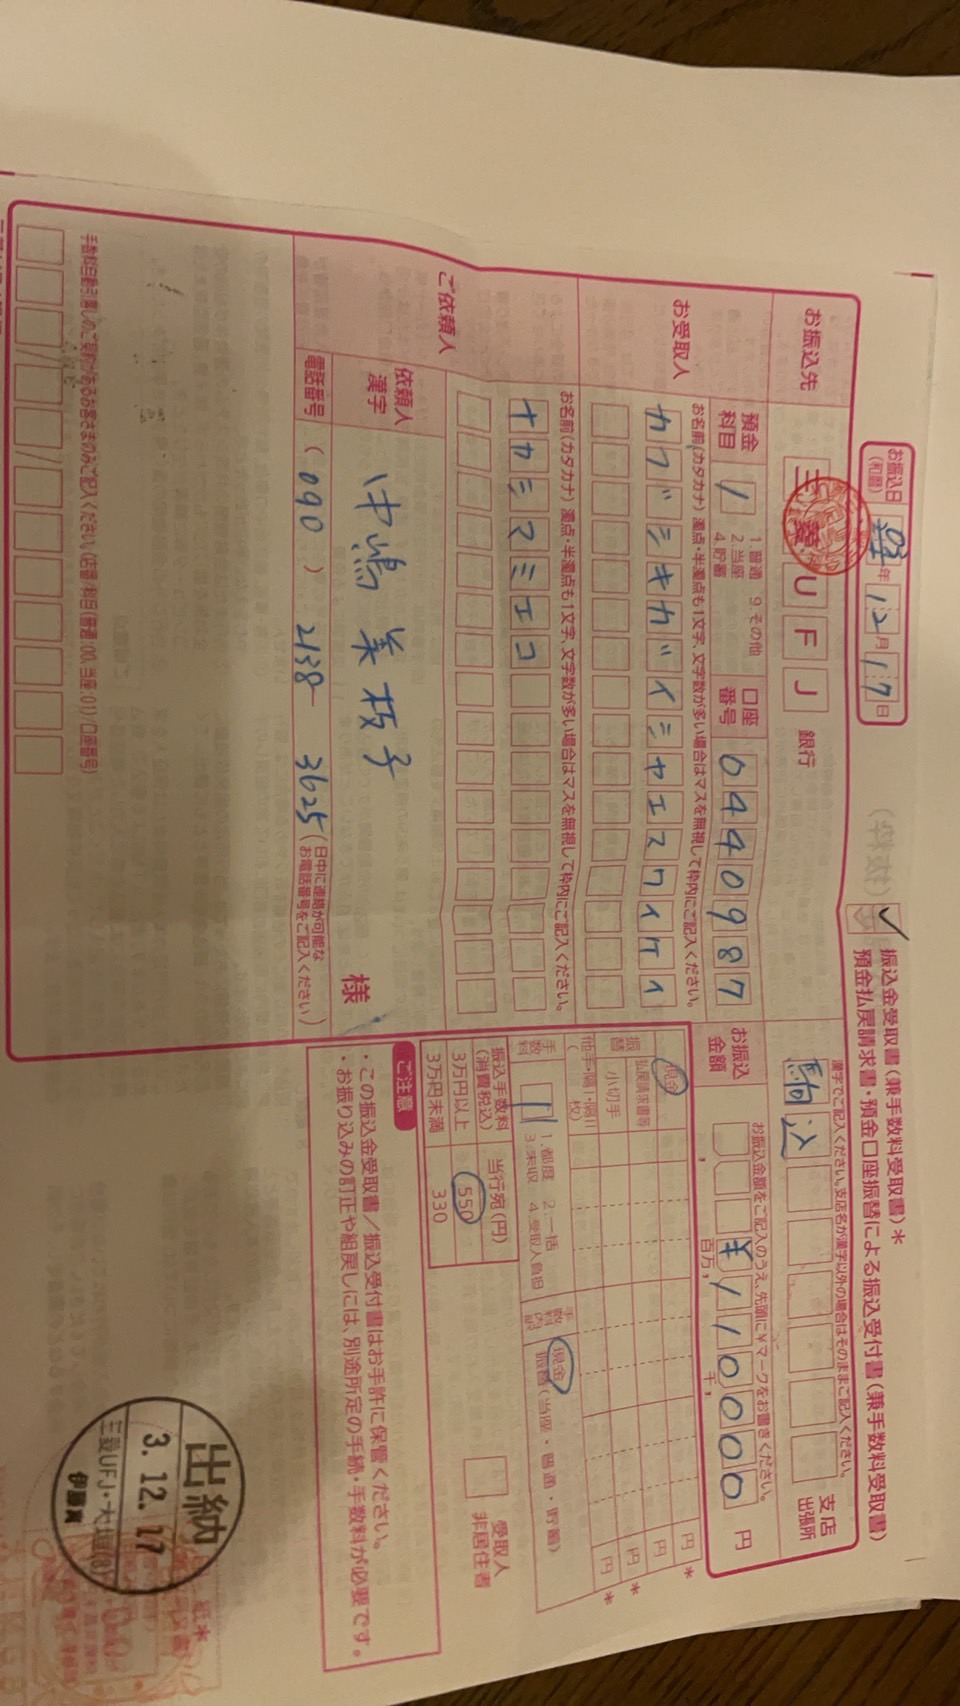 振込金受取書(兼手数料受取書)*
預金払戻請求書・預金口座振替による振込受付書(兼手数料受取書)
お振込日
(和暦)
03年12月17日
お振込先
三菱UFJ 銀行
漢字でご記入ください。支店名が漢字以外の場合はそのままご記入ください。
駒込
支店
出張所
預金
科目
1
1.普通 9.その他
2.当座
4.貯蓄
口座
番号
0440987
お振込
金額
お振込金額をご記入のうえ、先頭に¥マークをお書きください。
¥1100000
百万,
千,
円
お受取人
お名前(カタカナ) 濁点・半濁点も1文字、文字数が多い場合はマスを無視して枠内にご記入ください。
カブ゛シキカ゛イシヤエスワイケイ
現金
払戻請求書等
小切手
振替
円
*
ご依頼人
お名前(カタカナ) 濁点・半濁点も1文字、文字数が多い場合はマスを無視して枠内にご記入ください。
ナカシマミエコ
手数料
1
1.都度 2.一括
3.未収 4.受取人負担
手数料内訳
現金
振替(当座・普通・貯蓄)
依頼人
漢字
中嶋 美枝子
様
振込手数料
(消費税込)
当行宛(円)
3万円以上
550
3万円未満
330
受取人
非居住者
電話番号
(090) 2138-3625
(日中に連絡が可能な
お電話番号をご記入ください)
ご注意
・この振込金受取書/振込受付書はお手許に保管ください。
・お振り込みの訂正や組戻しには、別途所定の手続・手数料が必要です。
手数料自動引落しのご契約があるお客さまのみご記入ください。(店番/科目(普通:00、当座:01)/口座番号)
出納
3.12.17
三菱UFJ・大垣(8)
伊藤寛